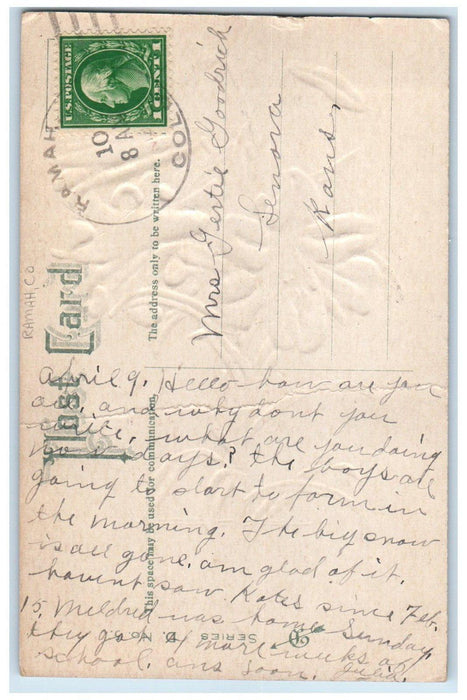 U.S. POSTAGE
1 CENT 1
RAMAH
COLO
10
8 A
Post Card
The address only to be written here.
This space may be used for communication.
RAMAH, CO
Mrs Gertie Goodrich
Lenora
Kans,
April 9. Hello how are you
all, and why dont you
write, what are you doing
now days? the boys are
going to start to farm in
the morning. The big snow
is all gone. am glad of it.
havent saw Kates since Feb.
15. Mildred was home Sunday.
they got 4 more weeks of
school. ans soon. Julia.
SERIES D. No.